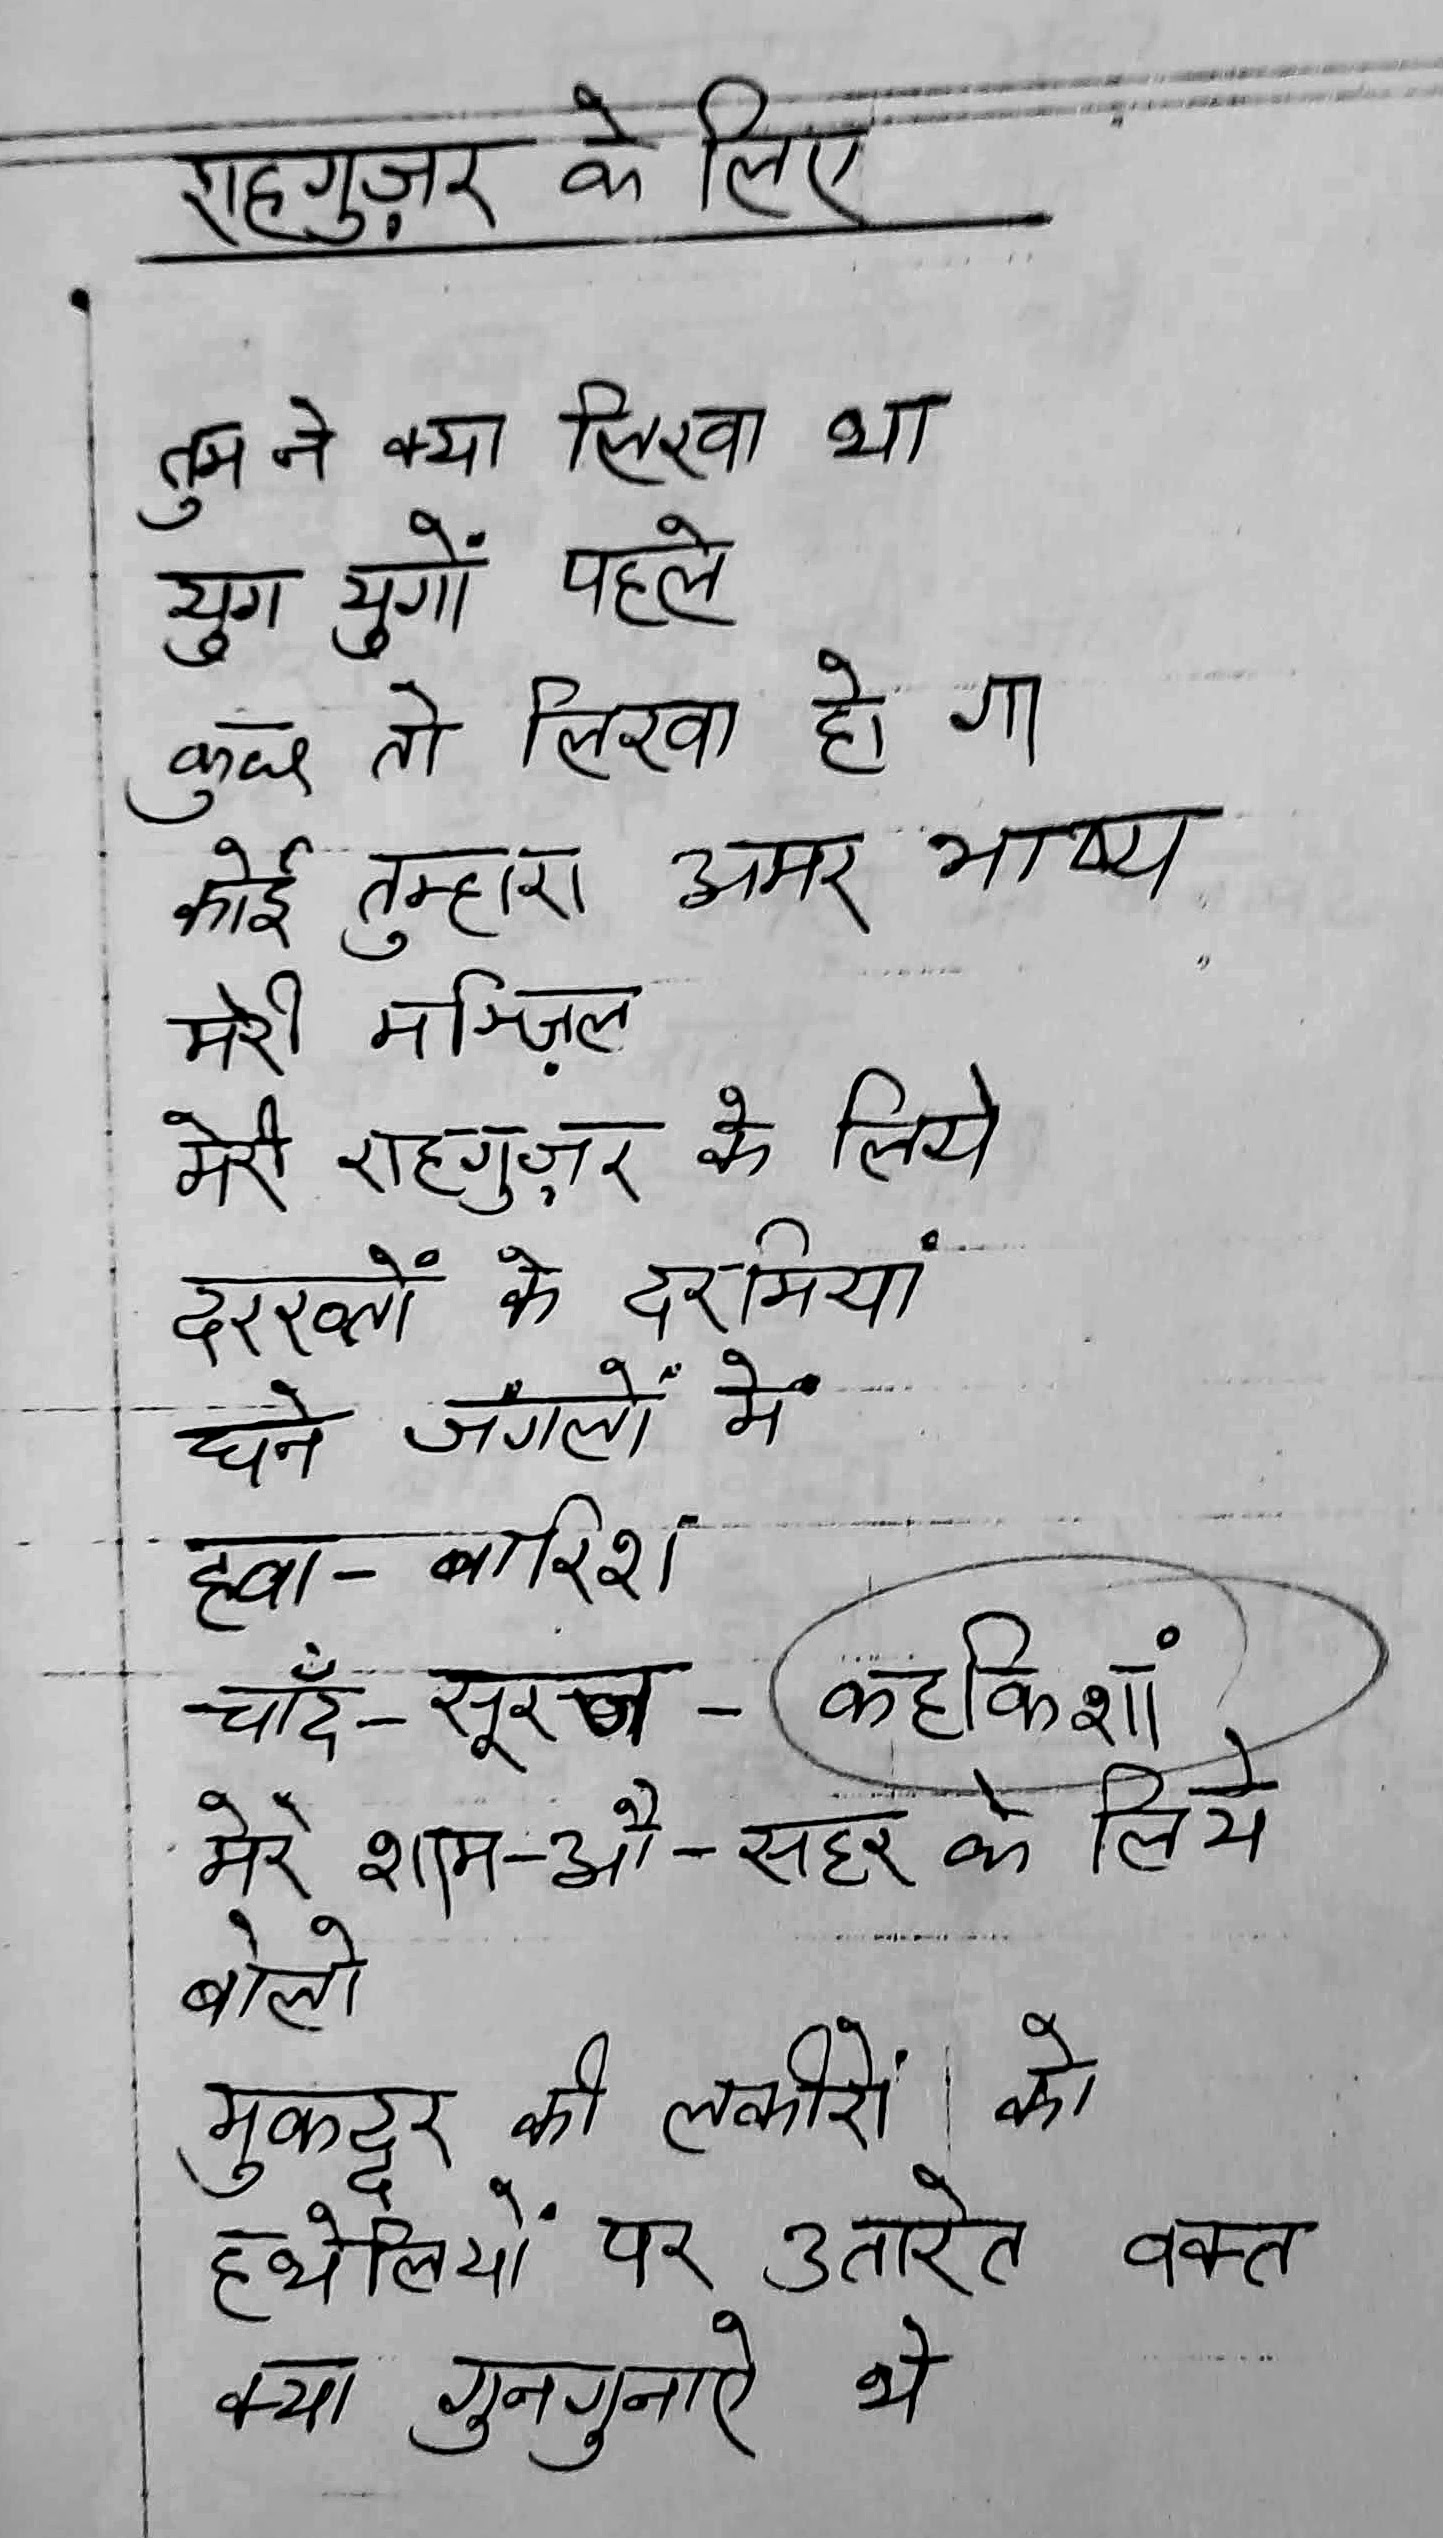 राहगुज़र के लिए
तुम ने क्या लिखा था
युग युगों पहले
कुछ तो लिखा हो गा
कोई तुम्हारा अमर भाष्य
मेरी मन्ज़िल
मेरी राहगुज़र के लिये
दरख्तों के दरमियां
घने जंगलों में
हवा - बारिश
चाँद - सूरज - कहकिशां
मेरे शाम - औ - सहर के लिये
बोलो
मुकद्दर की लकीरों को
हथेलियों पर उतारते वक्त
क्या गुनगुनाऐ थे